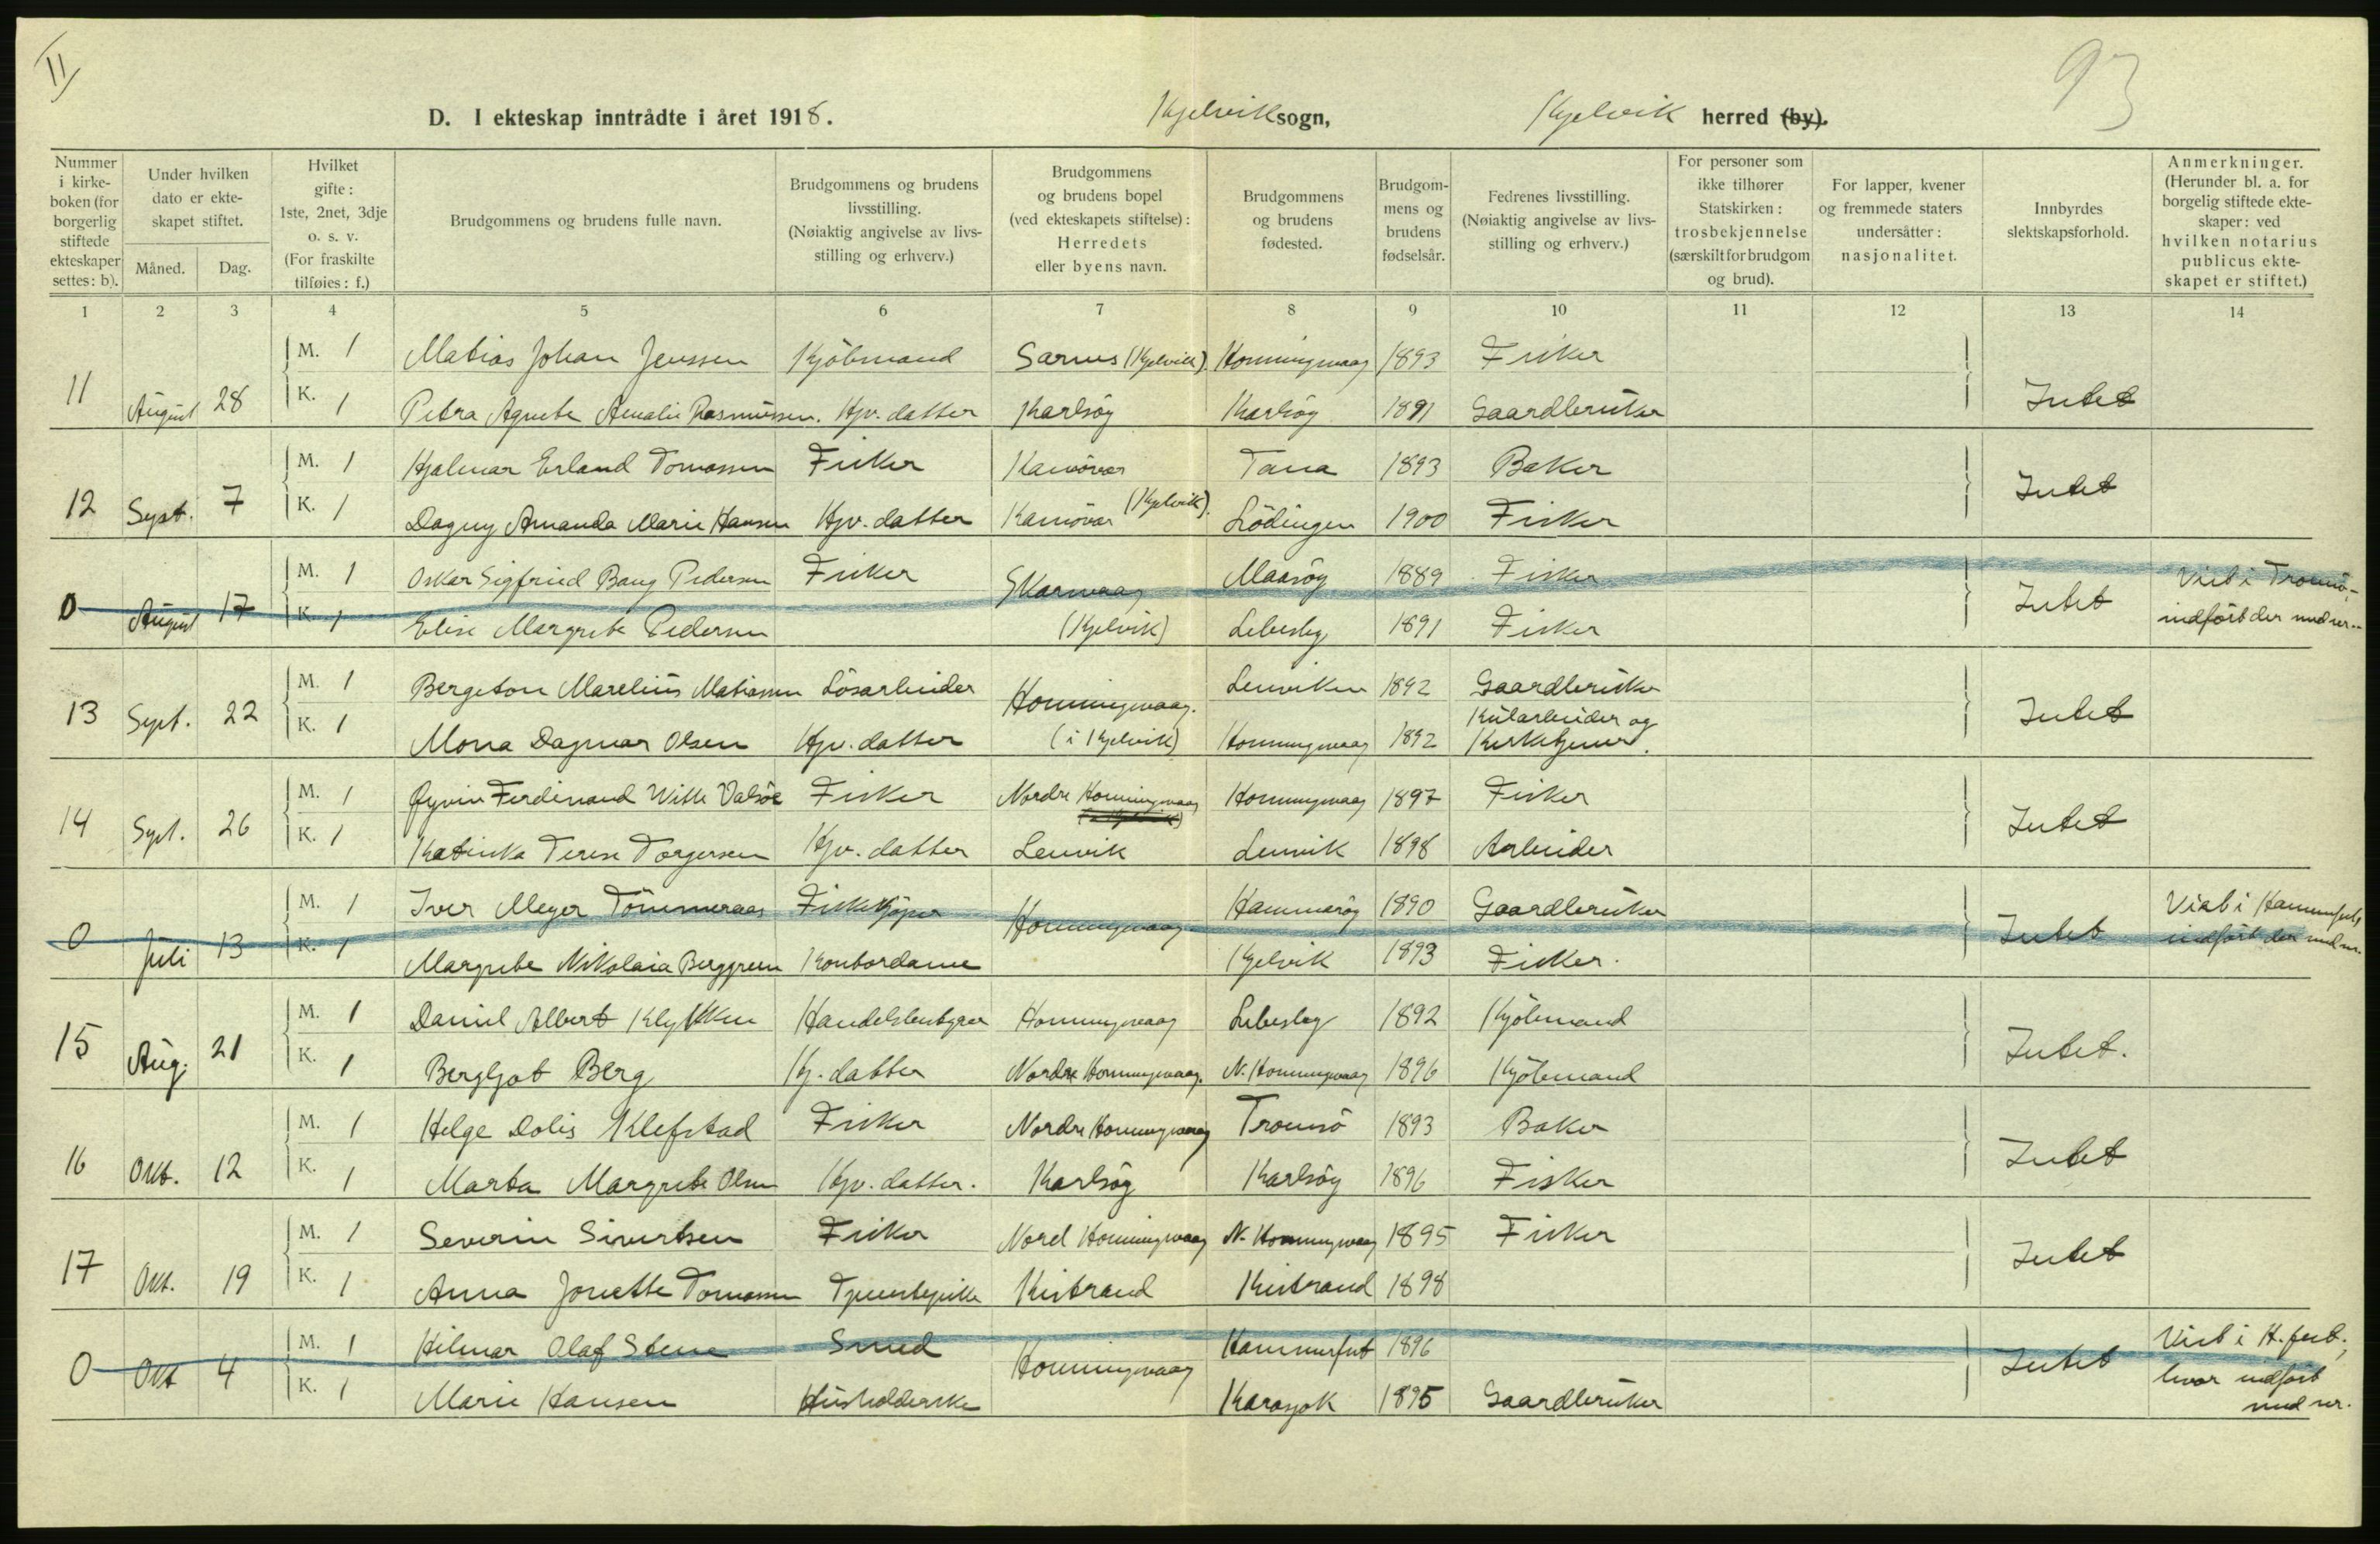 II
93
D. I ekteskap inntrådte i året 1918.
Kjelvik sogn,
Kjelvik herred (by).
Nummer i kirke-boken (for borgerlig stiftede ekteskaper settes: b).
Under hvilken dato er ekte-skapet stiftet.
Måned.
Dag.
Hvilket gifte: 1ste, 2net, 3dje o. s. v. (For fraskilte tilføies: f.)
Brudgommens og brudens fulle navn.
Brudgommens og brudens livsstilling. (Nøiaktig angivelse av livs-stilling og erhverv.)
Brudgommens og brudens bopel (ved ekteskapets stiftelse): Herredets eller byens navn.
Brudgommens og brudens fødested.
Brudgom-mens og brudens fødselsår.
Fedrenes livsstilling. (Nøiaktig angivelse av livs-stilling og erhverv.)
For personer som ikke tilhører Statskirken: trosbekjennelse (særskilt for brudgom og brud).
For lapper, kvener og fremmede staters undersåtter: nasjonalitet.
Innbyrdes slektskapsforhold.
Anmerkninger. (Herunder bl. a. for borgelig stiftede ekte-skaper: ved hvilken notarius publicus ekte-skapet er stiftet.)
1 2 3 4 5 6 7 8 9 10 11 12 13 14
11 August 28 M. 1 Matias Johan Jenssen Kjöbmand Sarnes (Kjelvik). Honningvaag 1893 Fisker Intet
K. 1 Petra Agnete Amalie Rasmussen. Hjv. datter Karlsöy Karlsöy 1891 Gaardbruker
12 Sept. 7 M. 1 Hjalmar Erland Tomassen Fisker Kamöver Tana 1893 Baker Intet
K. 1 Dagny Amanda Marie Hansen Hjv. datter Kamövær (Kjelvik). Lödingen 1900 Fisker
0 August 17 M. 1 Oskar Sigfried Bang Pedersen Fisker Skarsvaag Maasöy 1889 Fisker Intet Viet i Tromsö,
K. 1 Elise Margrete Pedersen (Kjelvik) Lebesby 1891 Fisker indfört der med nr.
13 Sept. 22 M. 1 Bergeton Marelius Matiassen Lösarbeider Honningsvaag. Lenviken 1892 Gaardbruker Intet
K. 1 Mona Dagmar Olsen Hjv. datter (i Kjelvik) Honningsvaag 1892 Kularbeider og Kirketjener.
14 Sept. 26 M. 1 Øyvin Ferdinand Witte Valsöe Fisker Nordre Honningsvaag Honningsvaag 1897 Fisker Intet
K. 1 Katinka Terese Torgersen Hjv. datter Lenvik Lenvik 1898 Arbeider
0 Juli 13 M. 1 Iver Meyer Tömmeraas Fiskekjöper Honningsvaag Hammeröy 1890 Gaardbruker Intet Viet i Hammerfest,
K. 1 Margrete Nikolaia Berggreen Kontordame Kjelvik 1893 Fisker. indfört der med nr.
15 Aug. 21 M. 1 Daniel Albert Klykken Handelsbestyrer Honningsvaag Lebesby 1892 Kjöbmand Intet.
K. 1 Bergljot Berg Hj. datter Nordre Honningsvaag. N. Honningsvaag 1896 Kjöbmand
16 Okt. 12 M. 1 Helge Dolis Klefstad Fisker Nordre Honningsvaag Tromsö 1893 Baker Intet
K. 1 Marta Margrete Olsen Hjv. datter. Karlsöy Karlsöy 1896 Fisker
17 Okt. 19 M. 1 Severin Sivertsen Fisker Nord Honningsvaag N. Honningsvaag 1895 Fisker Intet
K. 1 Anna Jonette Tomassen Tjenestepike Kistrand Kistrand 1898
0 Okt 4 M. 1 Hilmar Olaf Stene Smed Honningsvaag Hammerfest 1896 Intet Viet i H.fest.;
K. 1 Marie Hansen Husholderske Karasjok 1895 Gaardbruker hvor indfört
med nr.